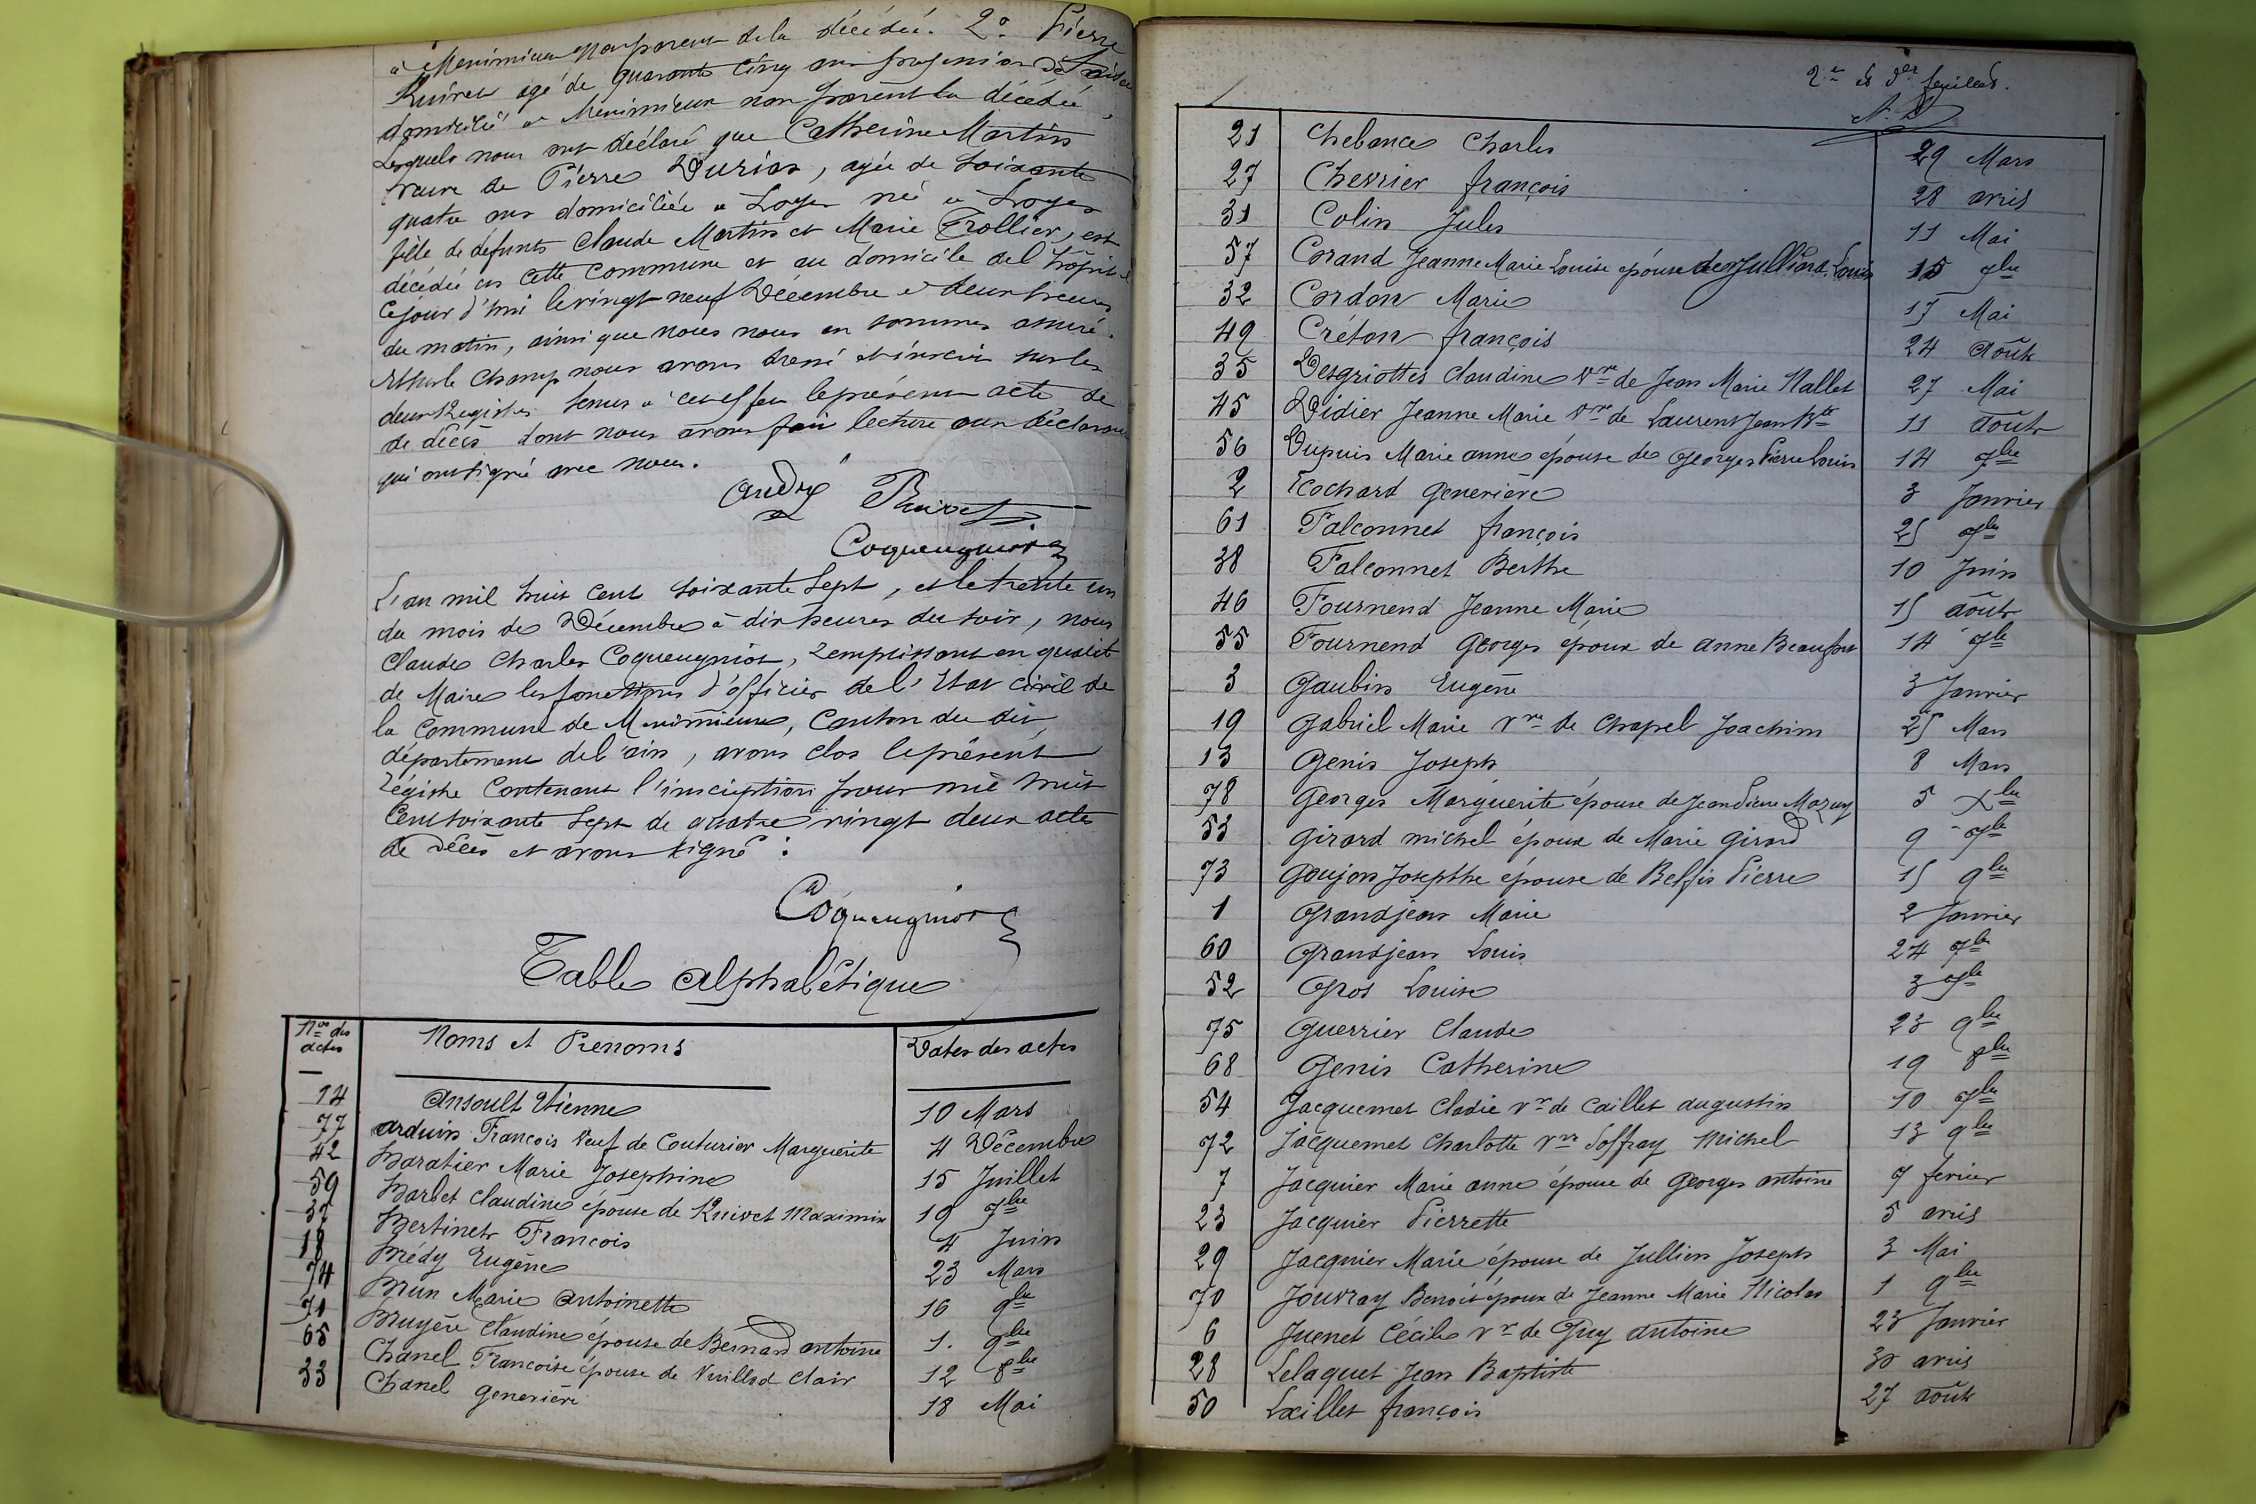 à Meximieux non parent de la décédée. 2° Pierre
Ruivet agé de quarante cinq ans profession de
domicilié à Meximieux non parent la décédée,
Lesquels nous ont déclaré que Catherine Martin
veuve de Pierre Durier, agée de soixante
quatre ans domiciliée à Loyes né à Loyes
fille de défunts Claude Martin et Marie Trollier, est
décédée en cette commune et au domicile de l'hôpital
Cejour d'hui le vingt neuf Décembre à deux heures
du matin, ainsi que nous nous en sommes assuré.
et sur le Champ nous avons dressé et inscrit sur les
deux Registres tenus à cet effet le présent acte de
de décès dont nous avons fait lecture aux déclarants
qui ont signé avec nous.
André Ruivet
Coqueugniot
L'an mil huit cent soixante Sept, et le trente un
du mois de Décembre à dix heures du soir, nous
Claude Charles Coqueugniot, remplissant en qualité
de Maire les fonctions d'officier de l'Etat civil de
la Commune de Meximieux, Canton du dit
département de l'ain, avons clos le présent
régistre Contenant l'inscription pour mil huit
Cent soixante Sept de quatre vingt deux actes
de Décès et avons signé :
Coqueugniot
Table alphabétique
Nos des actes Noms et Prenoms Dates des actes
14 Ansoult Etienne 10 Mars
77 arduin François Veuf de Couturier Marguerite 4 Décembre
42 Baratier Marie Josephine 15 Juillet
59 Barbet Claudine épouse de Ruivet Maximin 19 7bre
37 Bertinet François 4 Juin
18 Brédy Eugène 23 Mars
74 Brun Marie Antoinette 16 9bre
71 Bruyère Claudine épouse de Bernard antoine 1. 9bre
65 Chanel Françoise épouse de Vuillod Clair 12 8bre
33 Chanel Genevière 18 Mai
2e et der feuillet.
21 Chebance Charles 29 Mars
27 Chevrier françois 28 avril
31 Colin Jules 11 Mai
57 Corand Jeanne Marie Louise épouse de Julliard Louis 15 7bre
32 Cordon Marie 17 Mai
49 Créton françois 24 août
35 Desgriottes Claudine Vve de Jean Marie Nallet 27 Mai
45 Didier Jeanne Marie Vve de Laurent Jean Bte 11 août
56 Dupuis Marie anne épouse de Georges Pierre Louis 14 7bre
2 Ecochard Genevière 3 Janvier
61 Falconnet françois 25 7bre
38 Falconnet Berthe 10 Juin
46 Fournend Jeanne Marie 15 août
55 Fournend Georges époux de Anne Beaufort 14 7bre
3 Gaubin Eugène 3 Janvier
19 Gabriel Marie Vve de Chapel Joachim 25 Mars
13 Genis Joseph 8 Mars
78 Georges Marguerite épouse de Jean Pierre Mazuy 5 Xbre
53 Girard michel époux de Marie Girard 9 7bre
73 Goujon Josepthe épouse de Belfis Pierre 15 9bre
1 Grandjean Marie 2 Janvier
60 Grandjean Louis 24 7bre
52 Gros Louise 3 7bre
75 Guerrier Claude 23 9bre
68 Genis Catherine 19 8bre
54 Jacquemet Cladie Vve de Caillet augustin 10 7bre
72 Jacquemet Charlotte Vve Soffray Michel 13 9bre
7 Jacquier Marie anne épouse de Georges antoine 9 fevrier
23 Jacquier Pierrette 5 avril
29 Jacquier Marie épouse de Jullien Joseph 3 Mai
70 Jouvray Benoit époux de Jeanne Marie Nicolas 1 9bre
6 Juenet Cécile Vve de Guy Antoine 23 Janvier
28 Lelaquet Jean Baptiste 30 avril
50 Lxillet françois 27 août